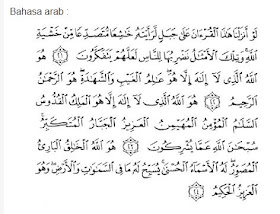 Bahasa arab :
لَوْ أَنزَلْنَا هَٰذَا الْقُرْءَانَ عَلَىٰ جَبَلٍ لَّرَأَيْتَهُ خَٰشِعًا مُّتَصَدِّعًا مِّنْ خَشْيَةِ
اللَّهِ وَتِلْكَ الْأَمْثَٰلُ نَضْرِبُهَا لِلنَّاسِ لَعَلَّهُمْ يَتَفَكَّرُونَ ٢١ هُوَ
اللَّهُ الَّذِي لَا إِلَٰهَ إِلَّا هُوَ عَٰلِمُ الْغَيْبِ وَالشَّهَٰدَةِ هُوَ الرَّحْمَٰنُ
الرَّحِيمُ ٢٢ هُوَ اللَّهُ الَّذِي لَا إِلَٰهَ إِلَّا هُوَ الْمَلِكُ الْقُدُّوسُ
السَّلَٰمُ الْمُؤْمِنُ الْمُهَيْمِنُ الْعَزِيزُ الْجَبَّارُ الْمُتَكَبِّرُ
سُبْحَٰنَ اللَّهِ عَمَّا يُشْرِكُونَ ٢٣ هُوَ اللَّهُ الْخَٰلِقُ الْبَارِئُ
الْمُصَوِّرُ لَهُ الْأَسْمَاءُ الْحُسْنَىٰ يُسَبِّحُ لَهُ مَا فِي السَّمَٰوَٰتِ وَالْأَرْضِ وَهُوَ
الْعَزِيزُ الْحَكِيمُ ٢٤